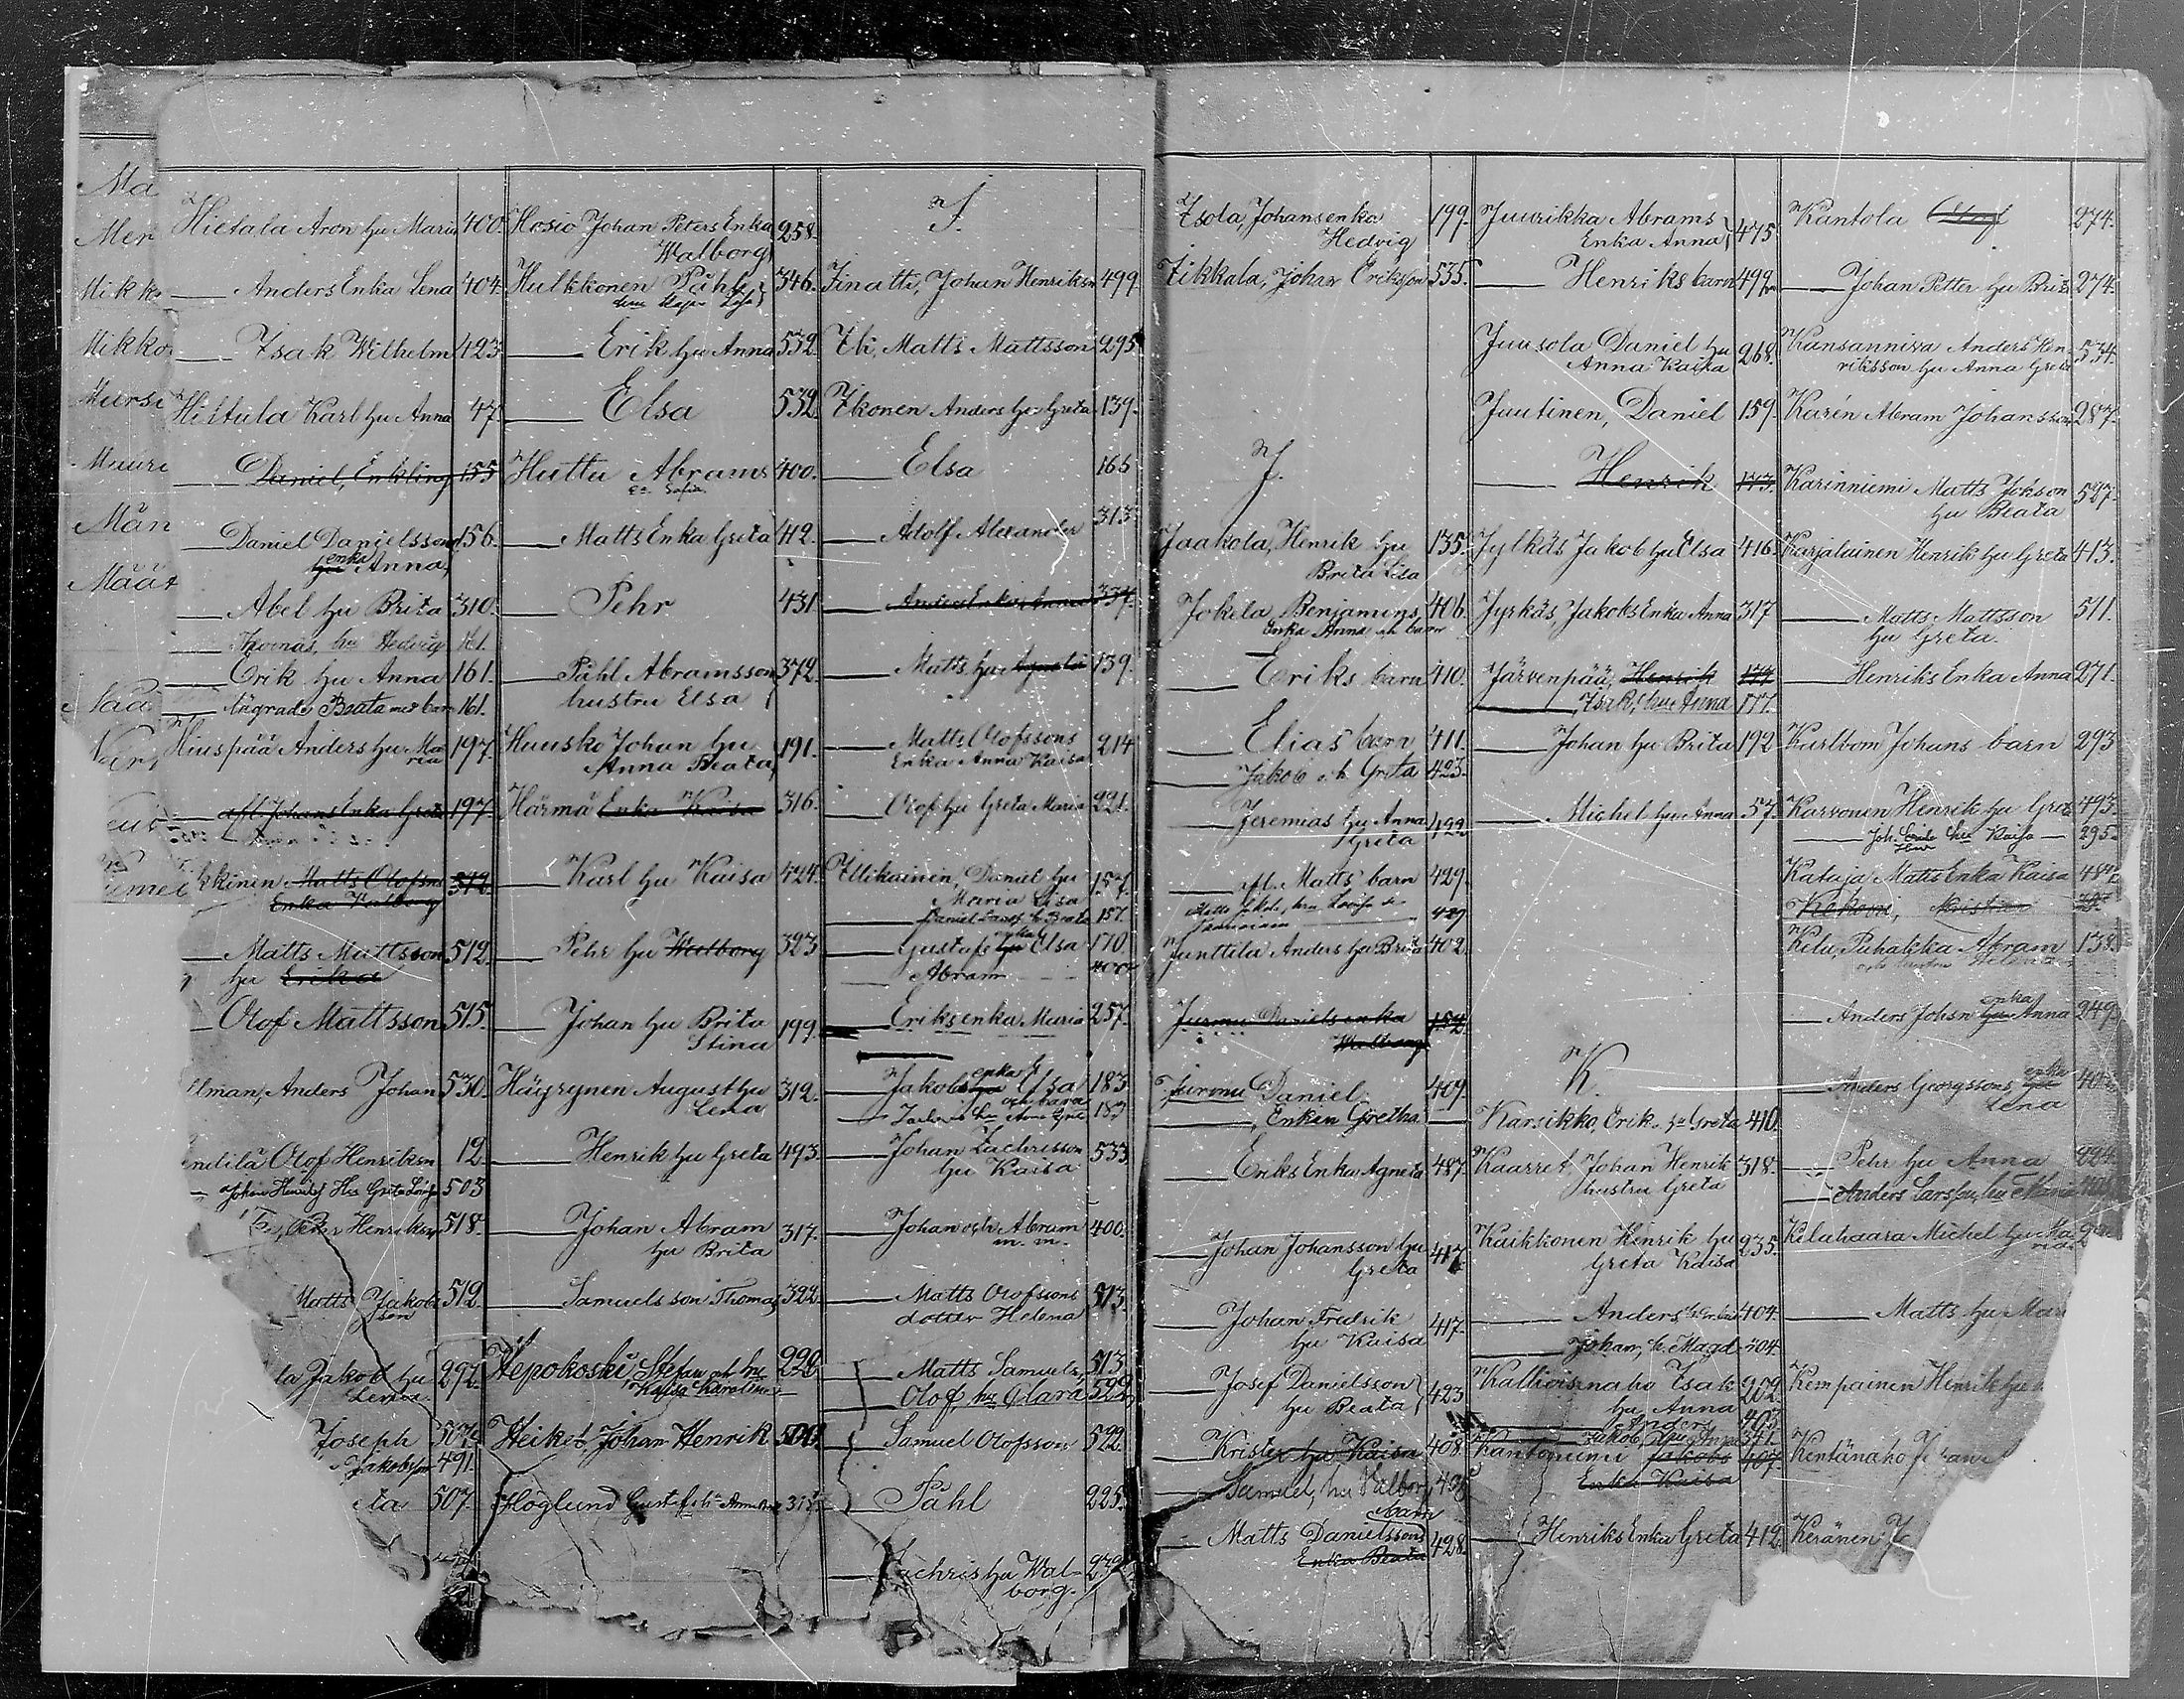 Ma
Mer
Mikko
Mikko
Mursi
Muuri
Män
Määt
Hietala Aron hu Maria 400.
— Anders Enka Lena 404.
— Isak Wilhelm 423
Hietula Karl hu Anna 47.
— Daniel, Enkling 155
— Daniel Danielsson 156.
hu enka Anna
— Abel hu Brita 310.
— Thomas, hu Hedvig 161.
— Erik hu Anna 161.
— Beata med barn 161.
Hiuspää Anders hu Maria 197.
— afl. Johans Enka Greta 197.
Matts Olofsons 512
Enka Valborg
— Matts Mattsson 512.
hu Erika
— Olof Mattsson 515.
Anders Johan 530.
Olof Henriksn 12
— Johan Henriks Hu Greta Lovisa 503
Henriksn 518.
Matts Jakobsson 512.
Jakob hu 292.
Leena
Joseph
Jakobsson 491.
507.
Hosio Johan Peters Enka 258.
Walborg
Hulkkonen Påhl 346.
— Erik hu Anna 532.
— Elsa 532.
Huttu Abrams 400.
Sofia
— Matts Enka Greta 412.
— Pehr 431
— Påhl Abramsson 372.
hustru Elsa
Huusko Johan hu 191.
Anna Beata
Härmä Enka Kaisa 316.
— Karl hu Kaisa 424.
— Pehr hu Walborg 323
— Johan hu Brita 199.
Stina
Häyrynen August hu 312.
Lena
— Henrik hu Greta 493.
— Johan Abram 317.
hu Brita
— Samuelsson Thomas 322.
Hepokoski Stefan och hu 220
Kaisa Karolina
Heikel, Johan Henrik 500
Höglund Gustaf
I.
Iinatti, Johan Henriksn 499.
Ii, Matts Mattsson 295.
Ikonen Anders hu Greta 139.
— Elsa 165
— Adolf Alexander 313
— Anders Enka Anna 337.
— Matts hu Agneta 139.
— Matts Olofssons 214
Enka Anna Kaisa
— Olof hu Greta Maria 221.
Illikainen, Daniel hu 157.
Maria Lisa
— Gustafs hu enka Elsa 170
— Abram 400
— Eriks enka Maria 257.
— Jakobs hu enka Elsa 183
och barn
— Johan Zachrisson 533
hu Kaisa
— Johan och Abram 400.
m. m.
— Matts Olofssons 513.
dotter Helena
— Matts Samuels. 513
— Olof hu Clara
— Samuel Olofsson 522.
— Påhl 225.
— Zachris hu Walborg. 232.
Isola, Johans enka 199.
Hedvig
Iikkala, Johan Eriksson 535.
J.
Jaakola, Henrik hu 135.
Brita Lisa
Jokela Benjamins 406.
Enka Anna och barn
— Eriks barn 410.
— Elias barn 411.
— Jakob och Greta 423.
— Jeremias hu Anna 199.
Greta
— afl. Matts barn 429.
427
Junttila Anders hu Brita 402.
Jurmu Daniels enka 154.
Walborg
Jurmu Daniel 409.
— Enkan Gretha —
— Eriks Enka Agneta 487.
— Johan Johansson hu 417
Greta
— Johan Fredrik 417.
hu Kaisa
— Josef Danielsson 423
hu Beata
— Krister hu Kaisa 408.
— Samuel, hu Valborg
— Matts Danielssons barn 428.
Enka Beata
Juurikka Abrams 475.
Enka Anna
— Henriks barn 499
Juusola Daniel hu 268.
Anna Kaisa
Juutinen, Daniel 159.
— Henrik 173.
Jylkäs Jakob hu Elsa 416.
Jyrkäs, Jakobs Enka Anna 317
Järvenpää, Henrik 177.
— Isak, hu Anna 177.
— Johan hu Brita 192
— Michel hu Anna 57.
K.
Karsikko, Erik hu Greta 410.
Kaarret Johan Henrik 318.
hustru Greta
Kaikkonen Henrik hu 235.
Greta Kaisa
— Anders 404.
— Johan, h. Magd. 404.
Kallioisenaho Isak 202.
hu Anna
— Anders 403
— Jakob, hu Anna 341.
Kantoniemi Jakobs 407.
Enka Kaisa
— Henriks Enka Greta 412.
Kantola Olof 274.
— Johan Petter hu Brita 274.
Kansanniva Anders Hen- 534.
riksson hu Anna Greta
Karén Abram Johansson 287.
Karinniemi Matts Johsson 527.
hu Beata
Karjalainen Henrik hu Greta 413.
— Matts Mattsson 511.
hu Greta.
— Henriks Enka Anna 271.
Karlbom Johans barn 293
Karvonen Henrik hu Greta 493.
— Joh. hu Kaisa — 295.
Kataja Matts Enka Kaisa
Kekoni, Kristian
Kela, Puhakka Abram 138.
och hustru Helena
— Anders Johsn hu enka Anna 249.
— Anders Georgssons hu enka
Lena
— Pehr hu Anna 224.
— Anders Larsson, hu Maria
Kelahaara Michel hu Maria
— Matts hu Mar
Kempainen Henrik hu
Kentänaho
Keränen J